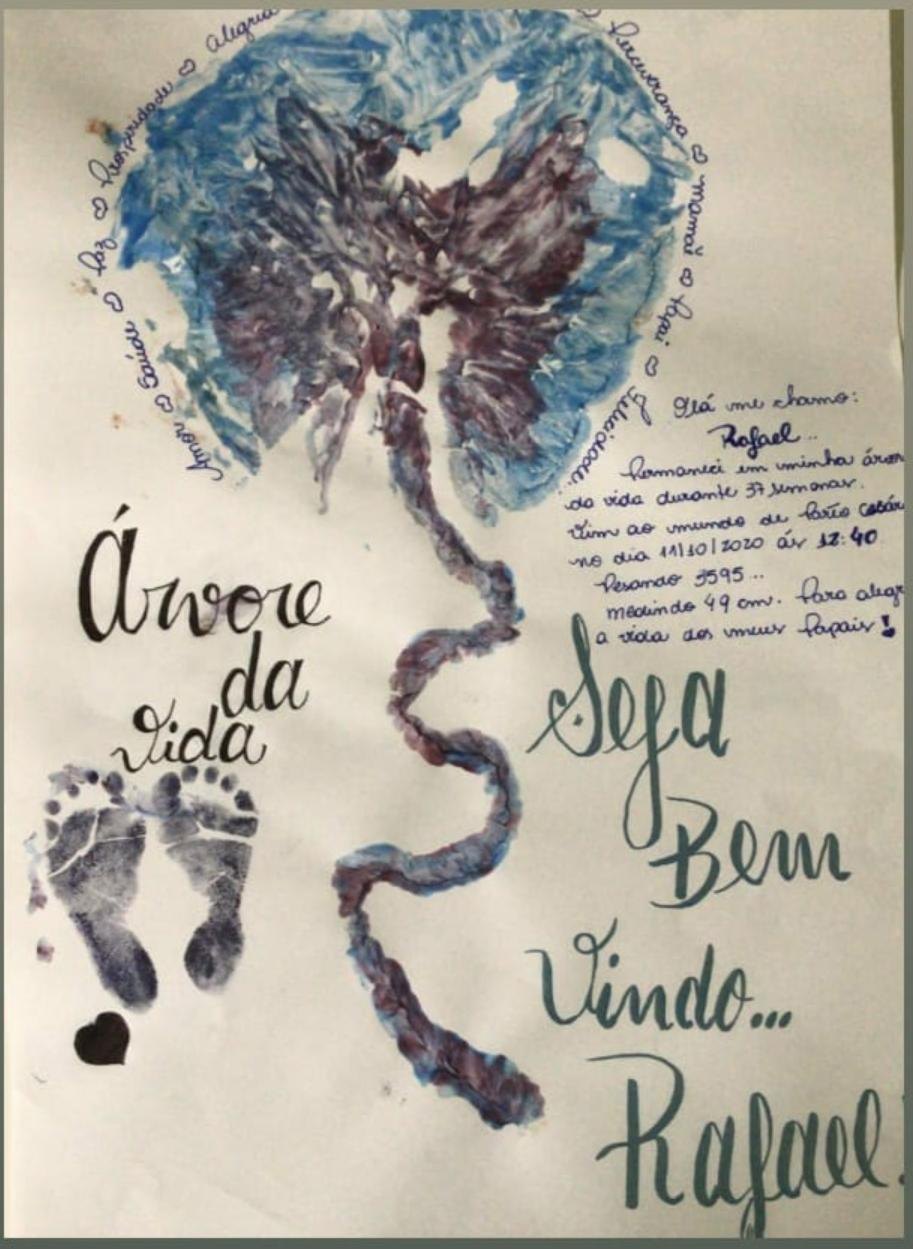 Amor ♡ Saúde ♡ Paz ♡ Prosperidade ♡ Alegria
♡ Perceverança ♡ mamãe ♡ Papai ♡ Felicidade...
Olá me chamo:
Rafael...
Permaneci em minha árvor
da vida durante 37 semanas.
Vim ao mundo de Parto cesár
no dia 11/10/2020 ás 12:40
Pesando 3595...
medindo 49 cm. Para alegr
a vida dos meus Papais!
Árvore
da
Vida
Seja
Bem
Vindo...
Rafael!